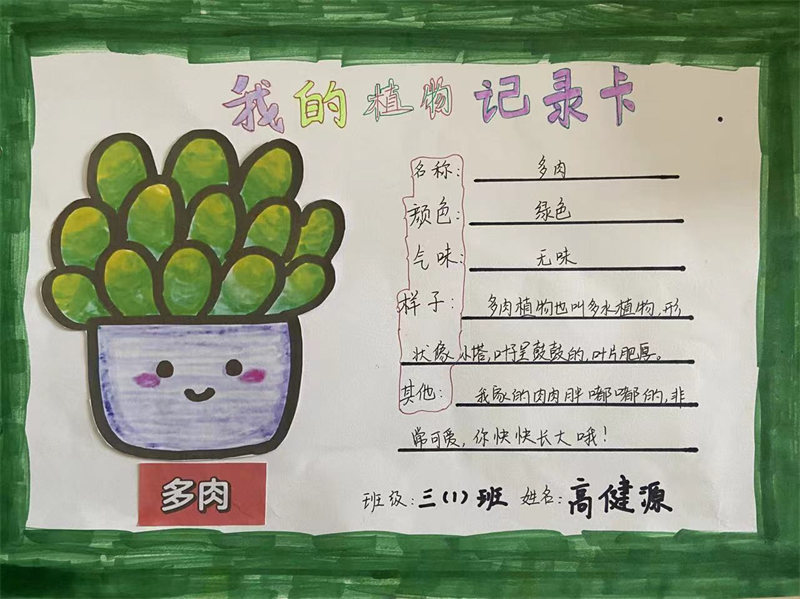 我的植物记录卡
名称：多肉
颜色：绿色
气味：无味
样子：多肉植物也叫多水植物，形
状像小塔，叶子呈鼓鼓的，叶片肥厚。
其他：我家的肉肉胖嘟嘟的，非
常可爱，你快快长大哦！
多肉
班级：三（1）班 姓名：高健源